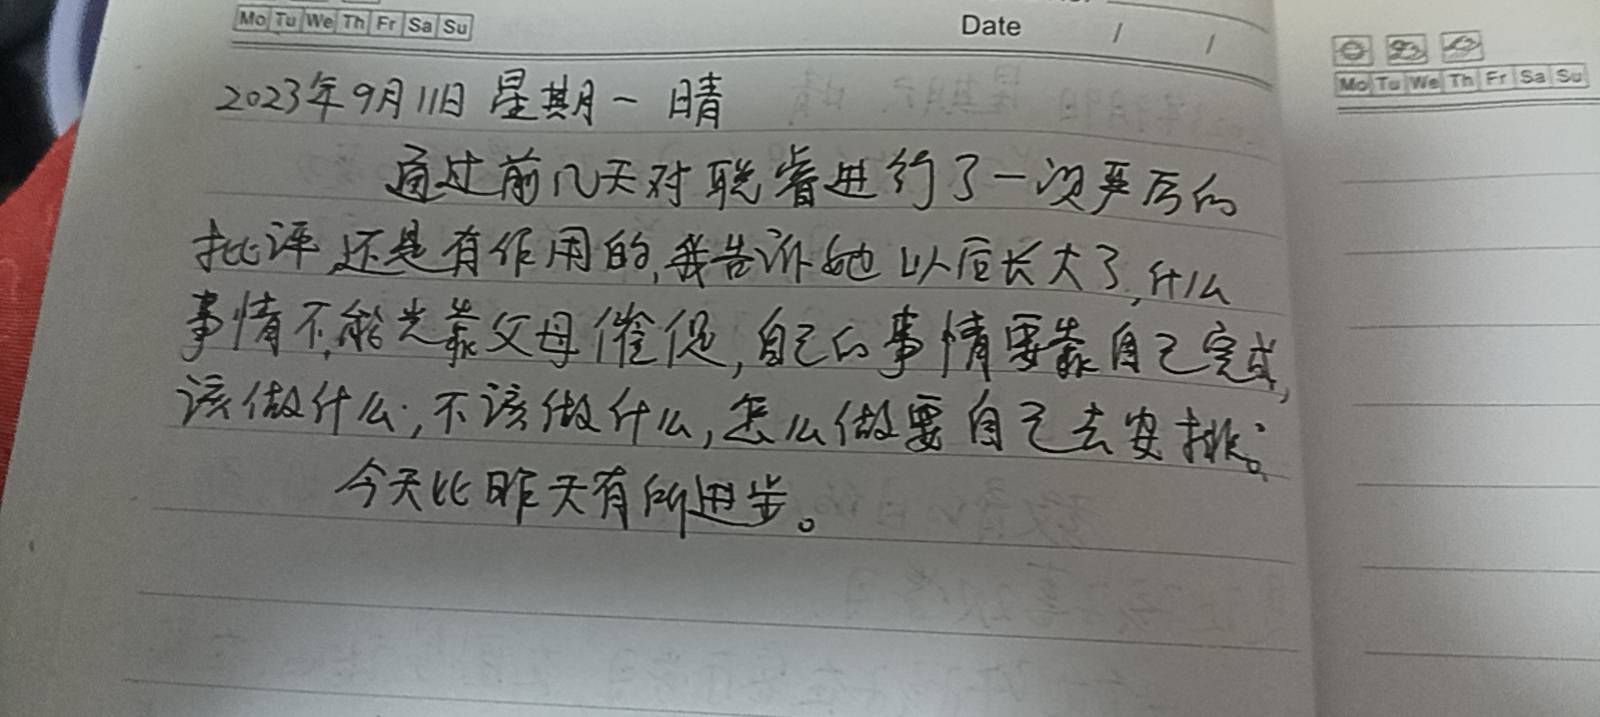 Mo Tu We Th Fr Sa Su
Date / /
Mo Tu We Th Fr Sa Su
2023年9月11日 星期一 晴
通过前几天对聪睿进行了一次严厉的
批评,还是有作用的,我告诉她以后长大了,什么
事情不能光靠父母催促,自己的事情要靠自己完成,
该做什么,不该做什么,怎么做要自己去安排。
今天比昨天有所进步。